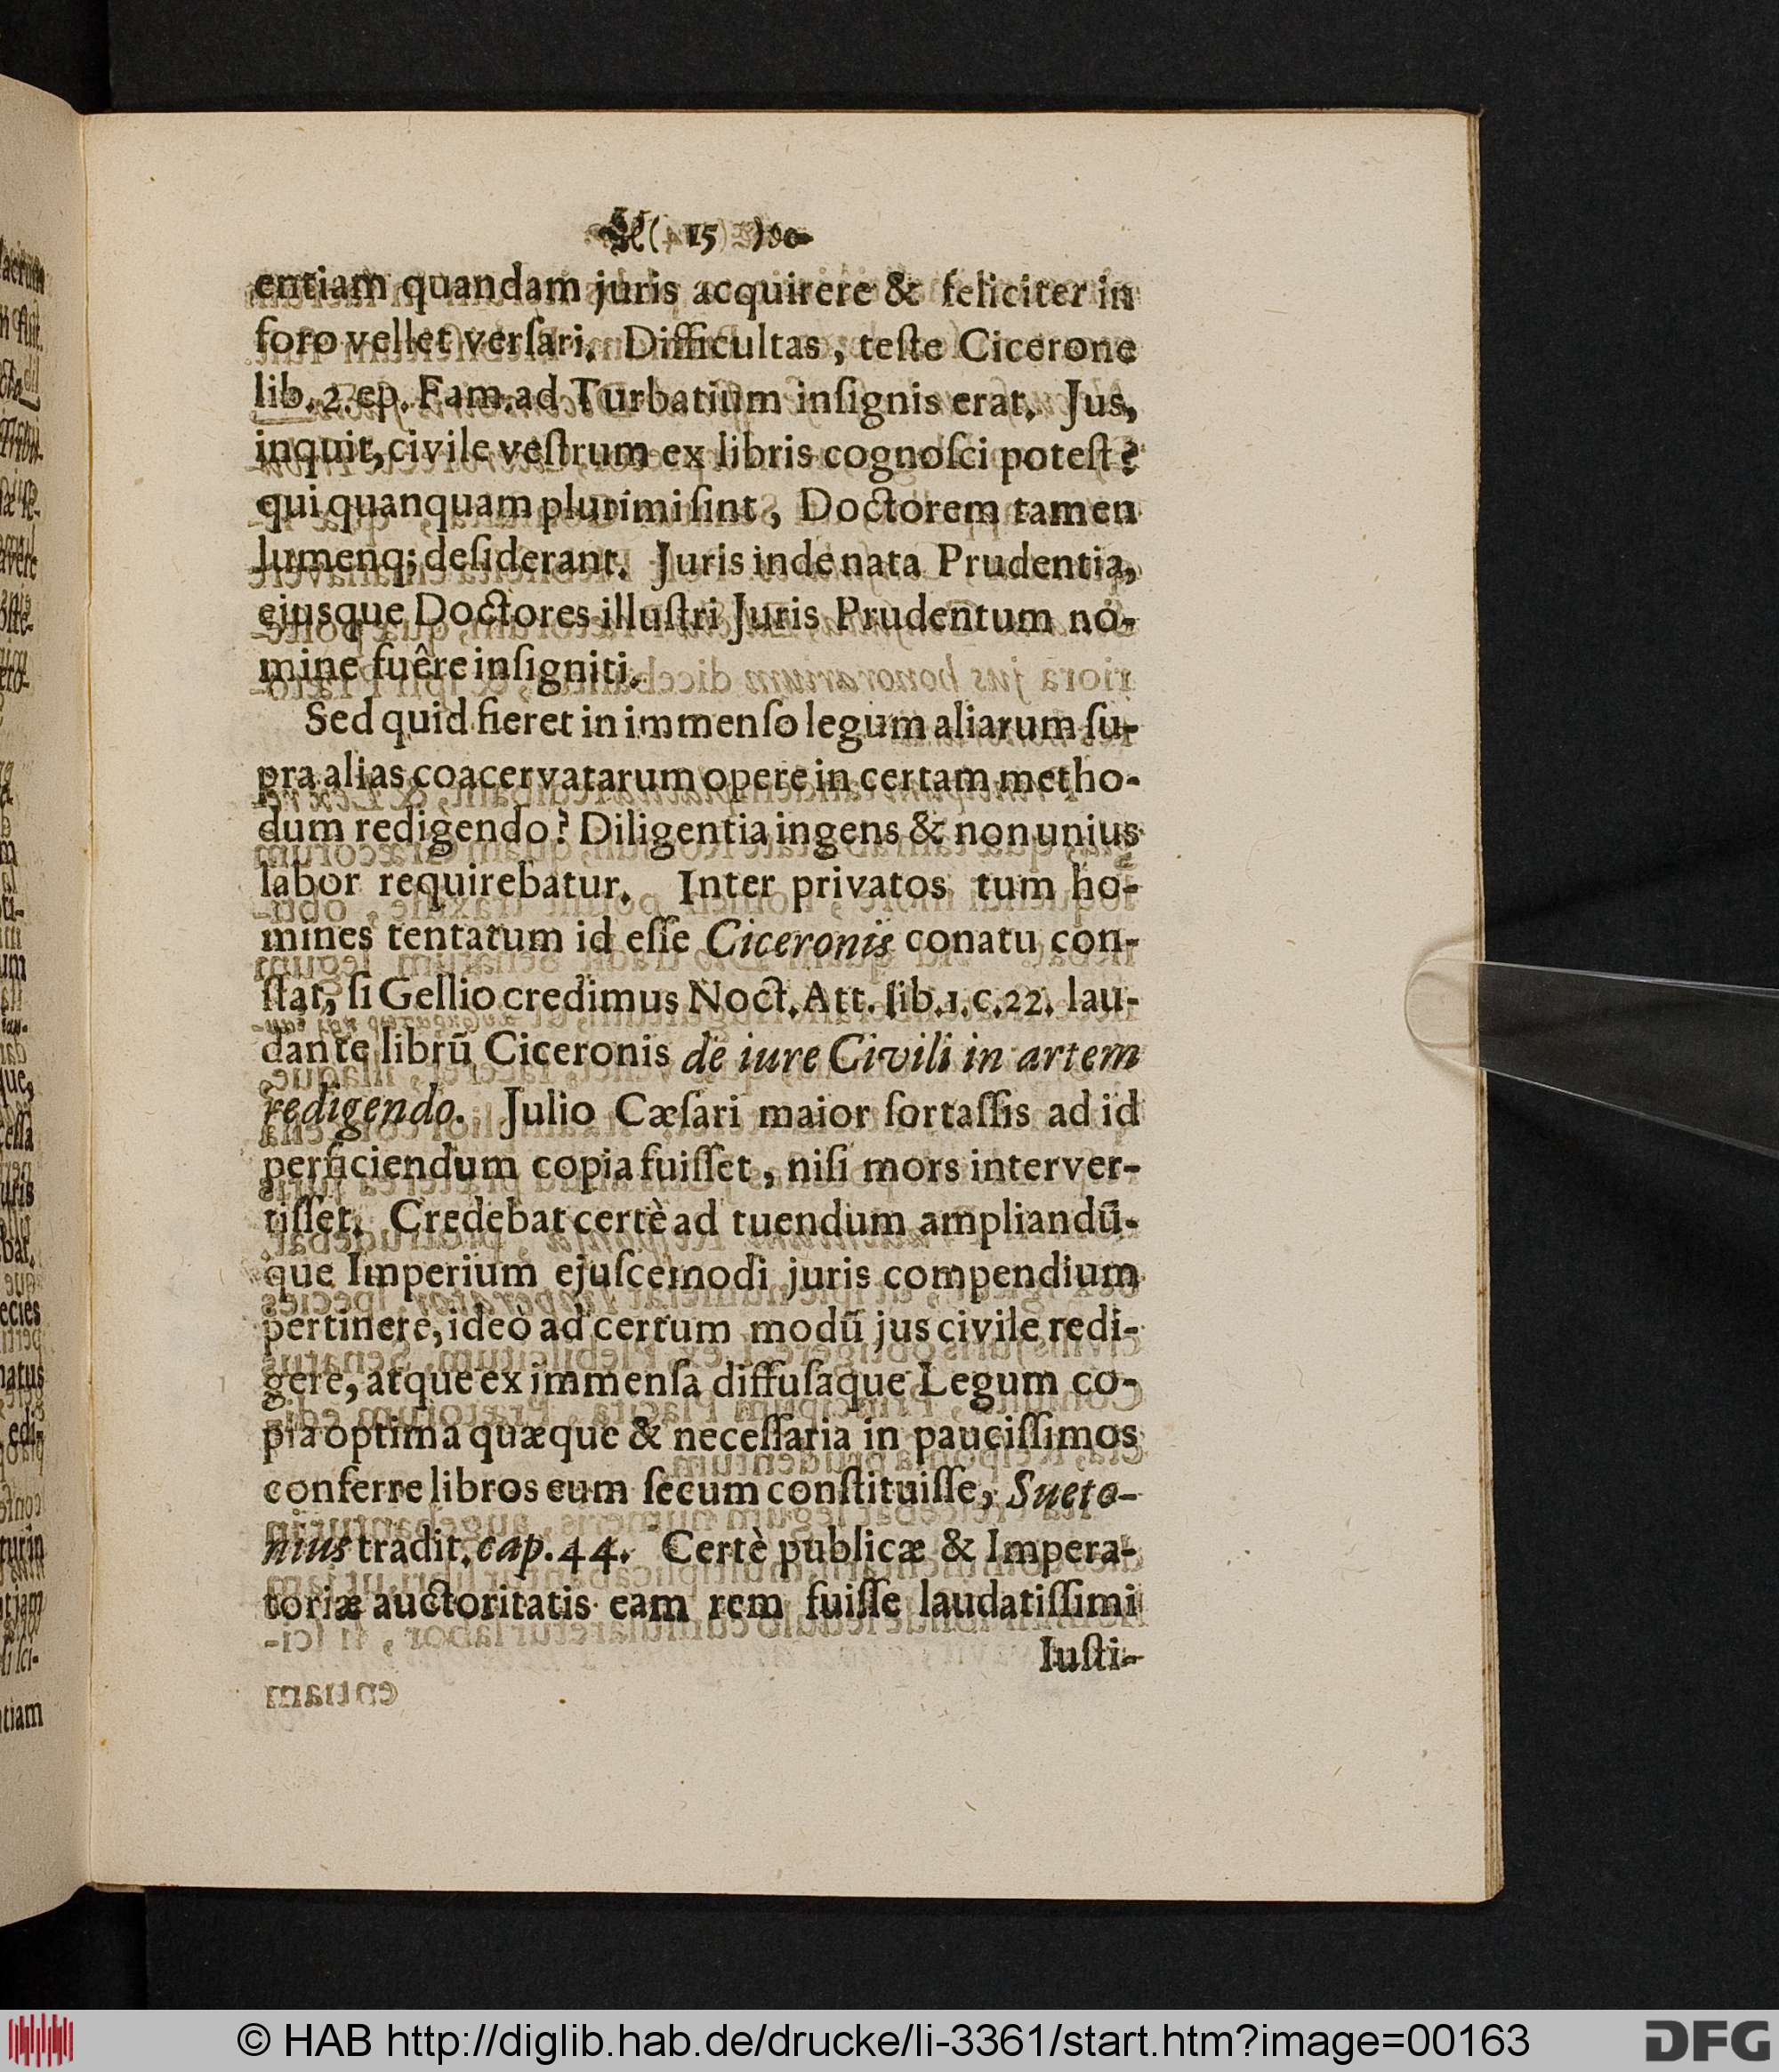 ( 15 )
entiam quandam juris acquirere & feliciter in
foro vellet verſari. Difficultas, teſte Cicerone
lib. 2. ep. Fam. ad Turbatium inſignis erat. Jus,
inquit, civile veſtrum ex libris cognoſci poteſt?
qui quanquam plurimi ſint, Doctorem tamen
lumenq; deſiderant. Juris inde nata Prudentia,
ejusque Doctores illuſtri Juris Prudentum no-
mine fuêre inſigniti.
Sed quid fieret in immenſo legum aliarum ſu-
pra alias coacervatarum opere in certam metho-
dum redigendo? Diligentia ingens & non unius
labor requirebatur. Inter privatos tum ho-
mines tentatum id eſſe Ciceronis conatu con-
ſtat, ſi Gellio credimus Noct. Att. lib. 1. c. 22. lau-
dante librū Ciceronis de iure Civili in artem
redigendo. Julio Cæſari maior fortaſſis ad id
perficiendum copia fuiſſet, niſi mors interver-
tiſſet. Credebat certè ad tuendum ampliandū-
que Imperium ejuſcemodi juris compendium
pertinere, ideò ad certum modū jus civile redi-
gere, atque ex immenſa diffuſaque Legum co-
pia optima quæque & neceſſaria in pauciſſimos
conferre libros eum ſecum conſtituiſſe, Sueto-
nius tradit. cap. 44. Certè publicæ & Impera-
toriæ auctoritatis eam rem fuiſſe laudatiſſimi
Iuſti-
© HAB http://diglib.hab.de/drucke/li-3361/start.htm?image=00163
DFG